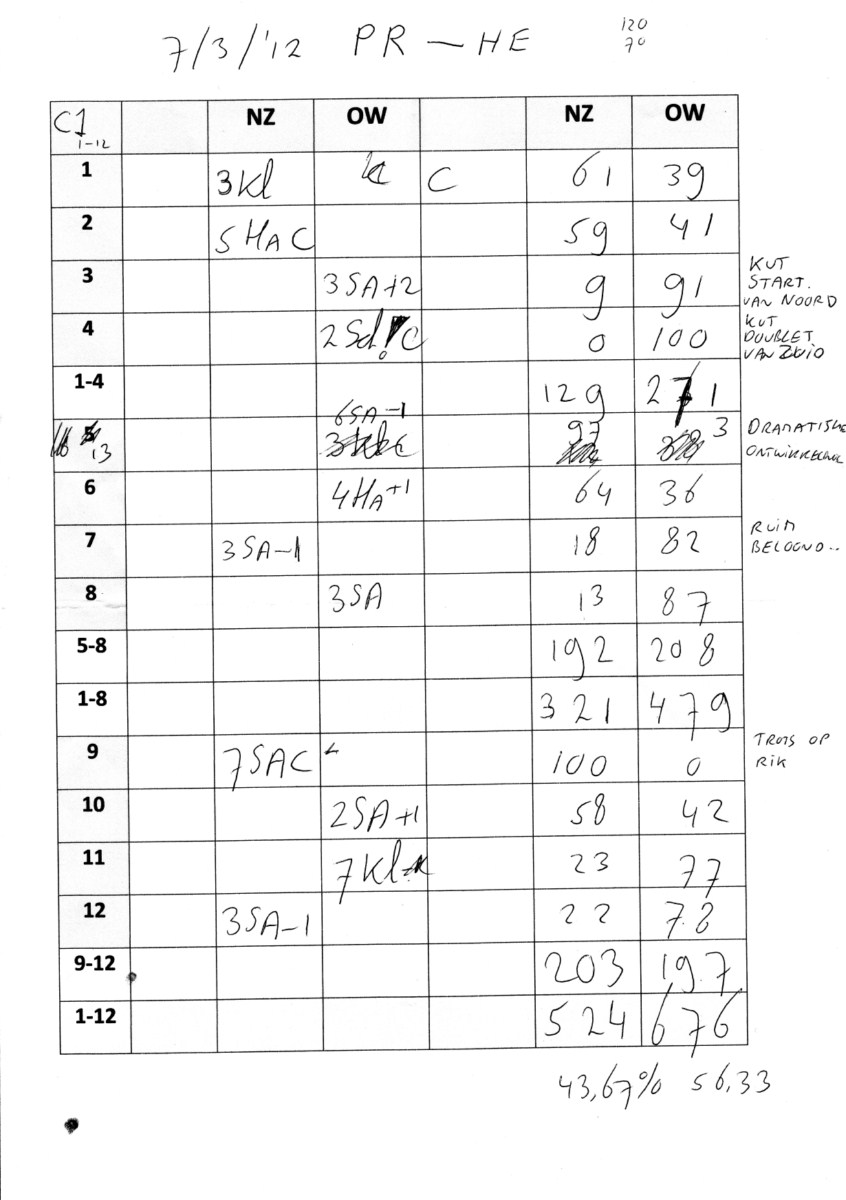 7/3/'12 PR — HE 120
70
C1 NZ OW NZ OW
1-12
1 3Kl C 61 39
2 5HAC 59 41
3 3SA+2 9 91
KUT
START.
VAN NOORD
4 2Sd! C 0 100
KUT
DOUBLET
VAN ZUID
1-4 129 271
6SA-1
13 97 3
DRAMATISCHE
ONTWIKKELING
6 4HA+1 64 36
7 3SA-1 18 82
RUIM
BELOOND..
8 3SA 13 87
5-8 192 208
1-8 321 479
9 7SAC 100 0
TROTS OP
RIK
10 2SA+1 58 42
11 7Kl 23 77
12 3SA-1 22 78
9-12 203 197
1-12 524 676
43,67% 56,33